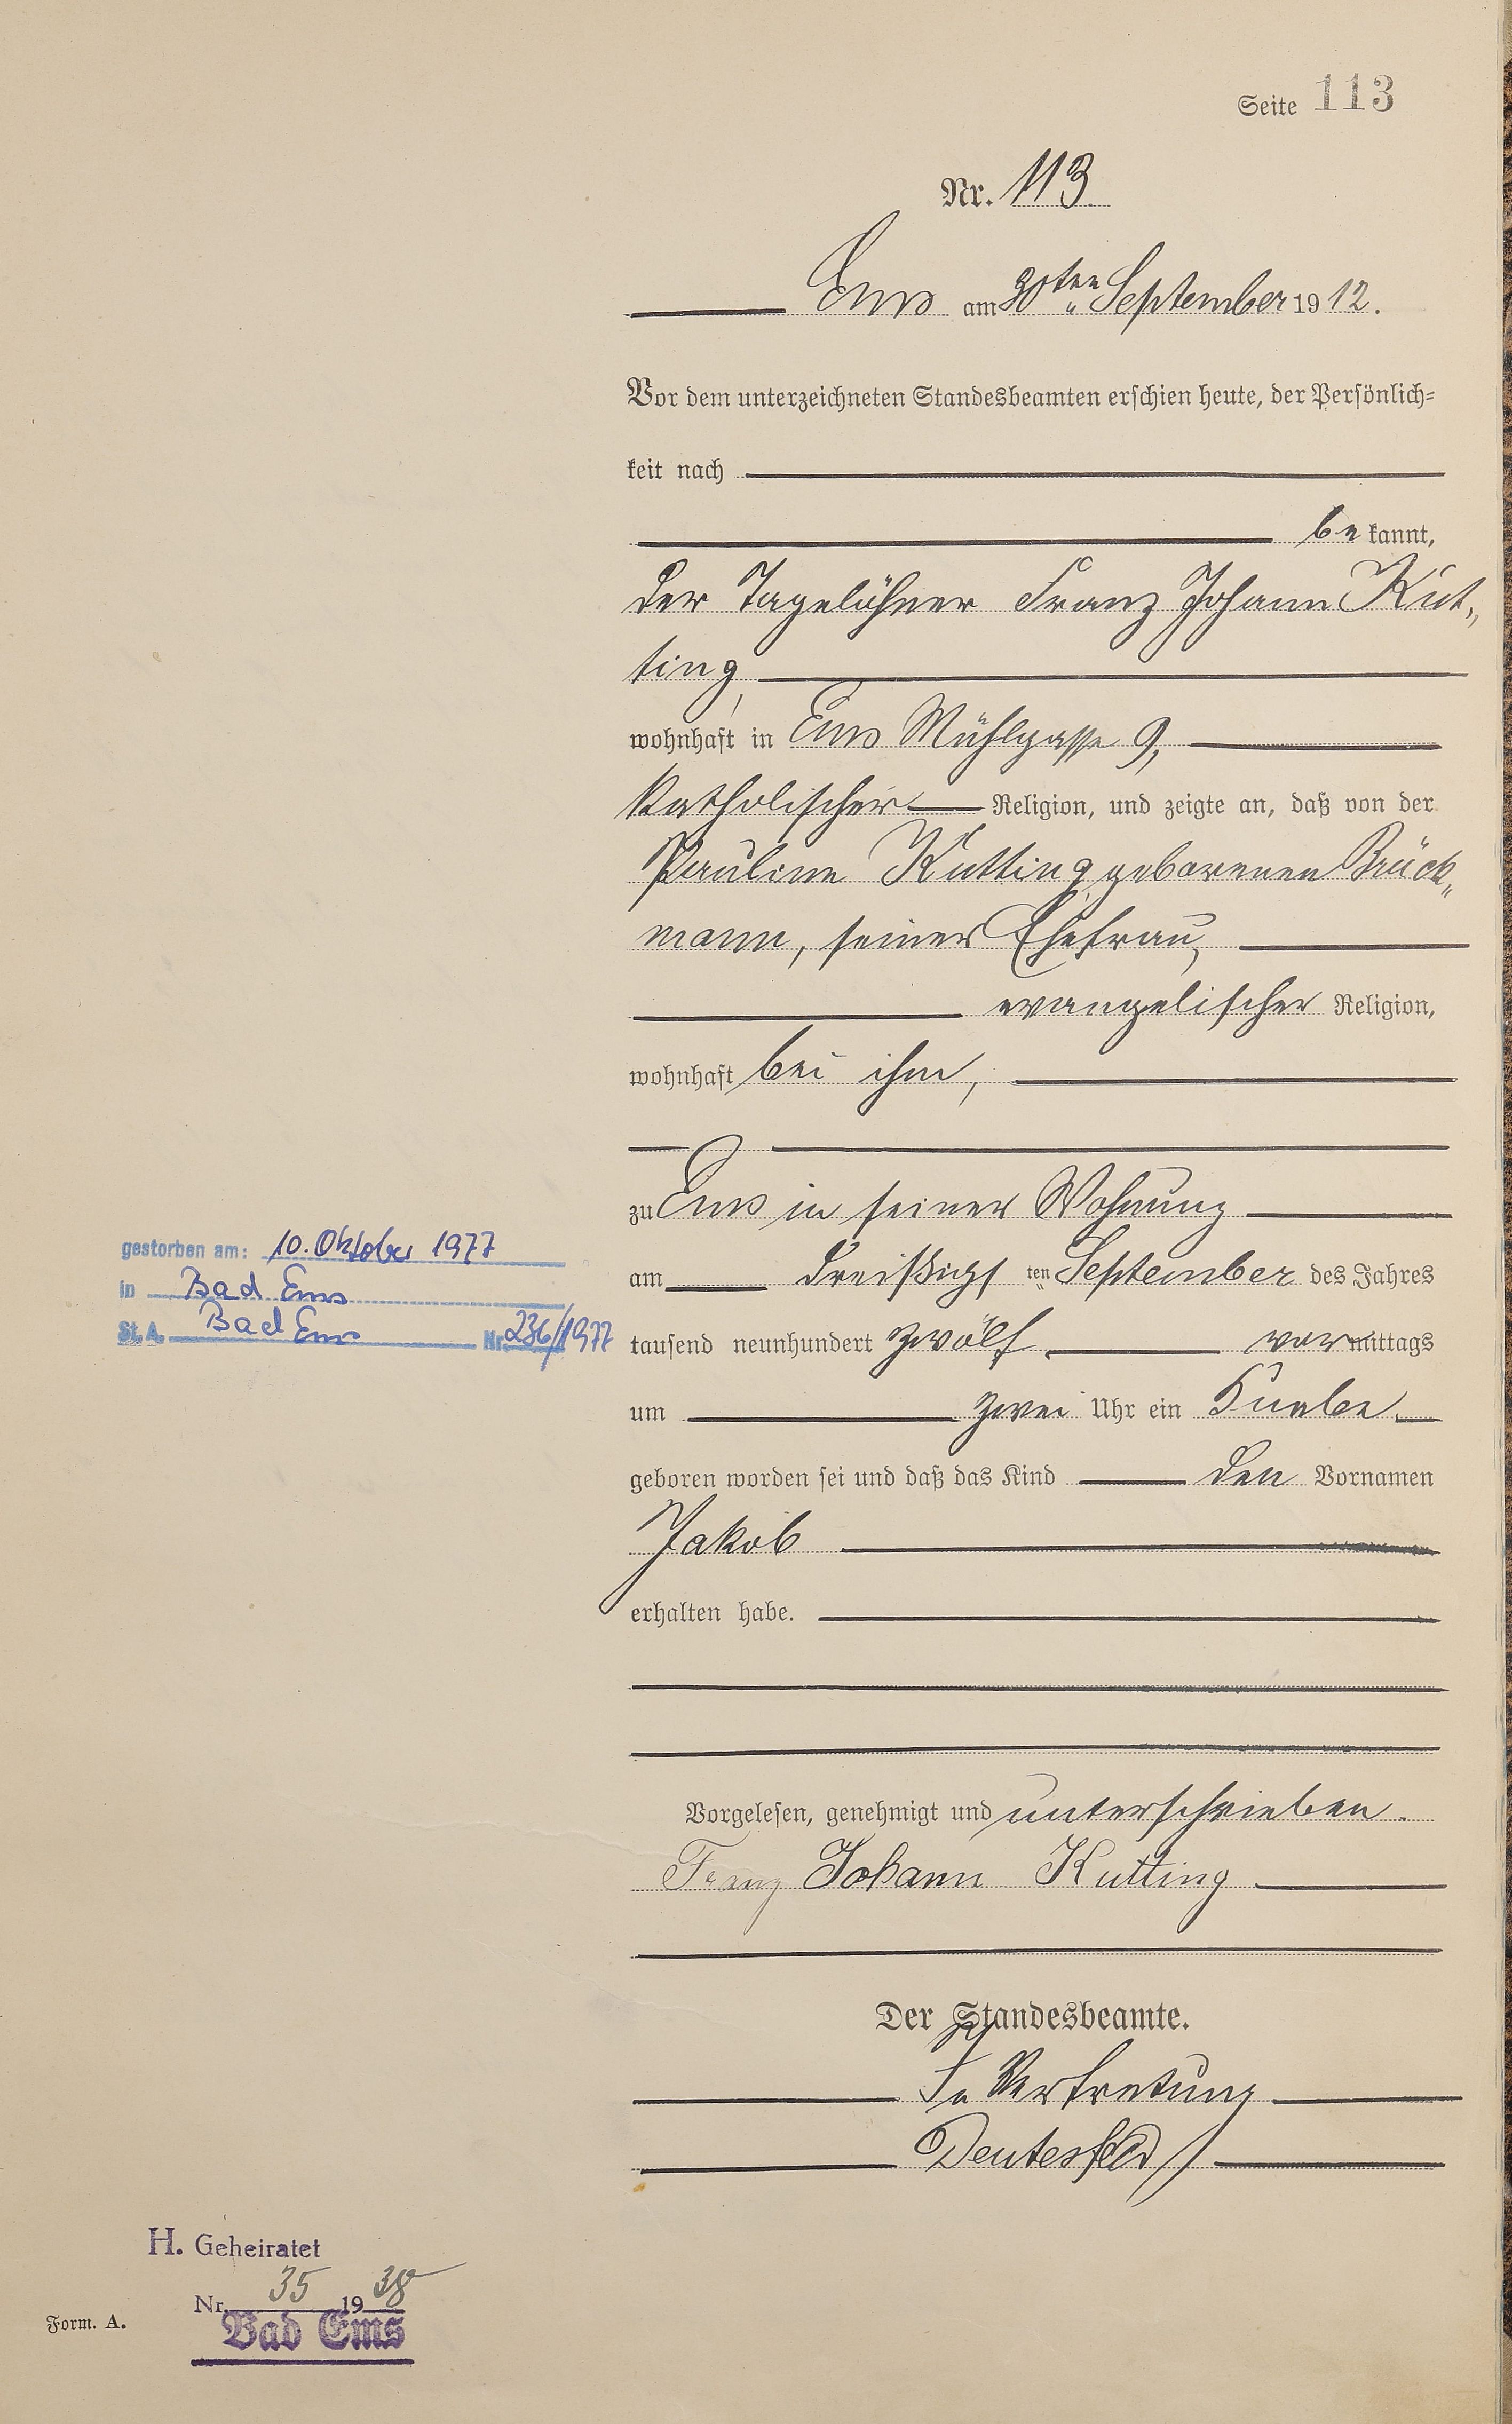 Seite 113
Nr. 113
Ems am 30ten September 1912.
Vor dem unterzeichneten Standesbeamten erschien heute, der Persönlich-
keit nach
bekannt,
der Tagelöhner Franz Johann Kut-
ting,
wohnhaft in Ems Mühlgasse 9,
katholischer Religion, und zeigte an, daß von der
Pauline Kutting geborenen Brück-
mann, seiner Ehefrau,
evangelischer Religion,
wohnhaft bei ihm,
zu Ems in seiner Wohnung
am dreißigsten September des Jahres
tausend neunhundert zwölf vormittags
um zwei Uhr ein Knabe
geboren worden sei und daß das Kind den Vornamen
Jakob
erhalten habe.
Vorgelesen, genehmigt und unterschrieben.
Franz Johann Kutting
Der Standesbeamte.
In Vertretung
gestorben am: 10. Oktober 1977
in Bad Ems
St. A. Bad Ems Nr. 236/1977
H. Geheiratet
Nr. 35 1938
Bad Ems
Form. A.